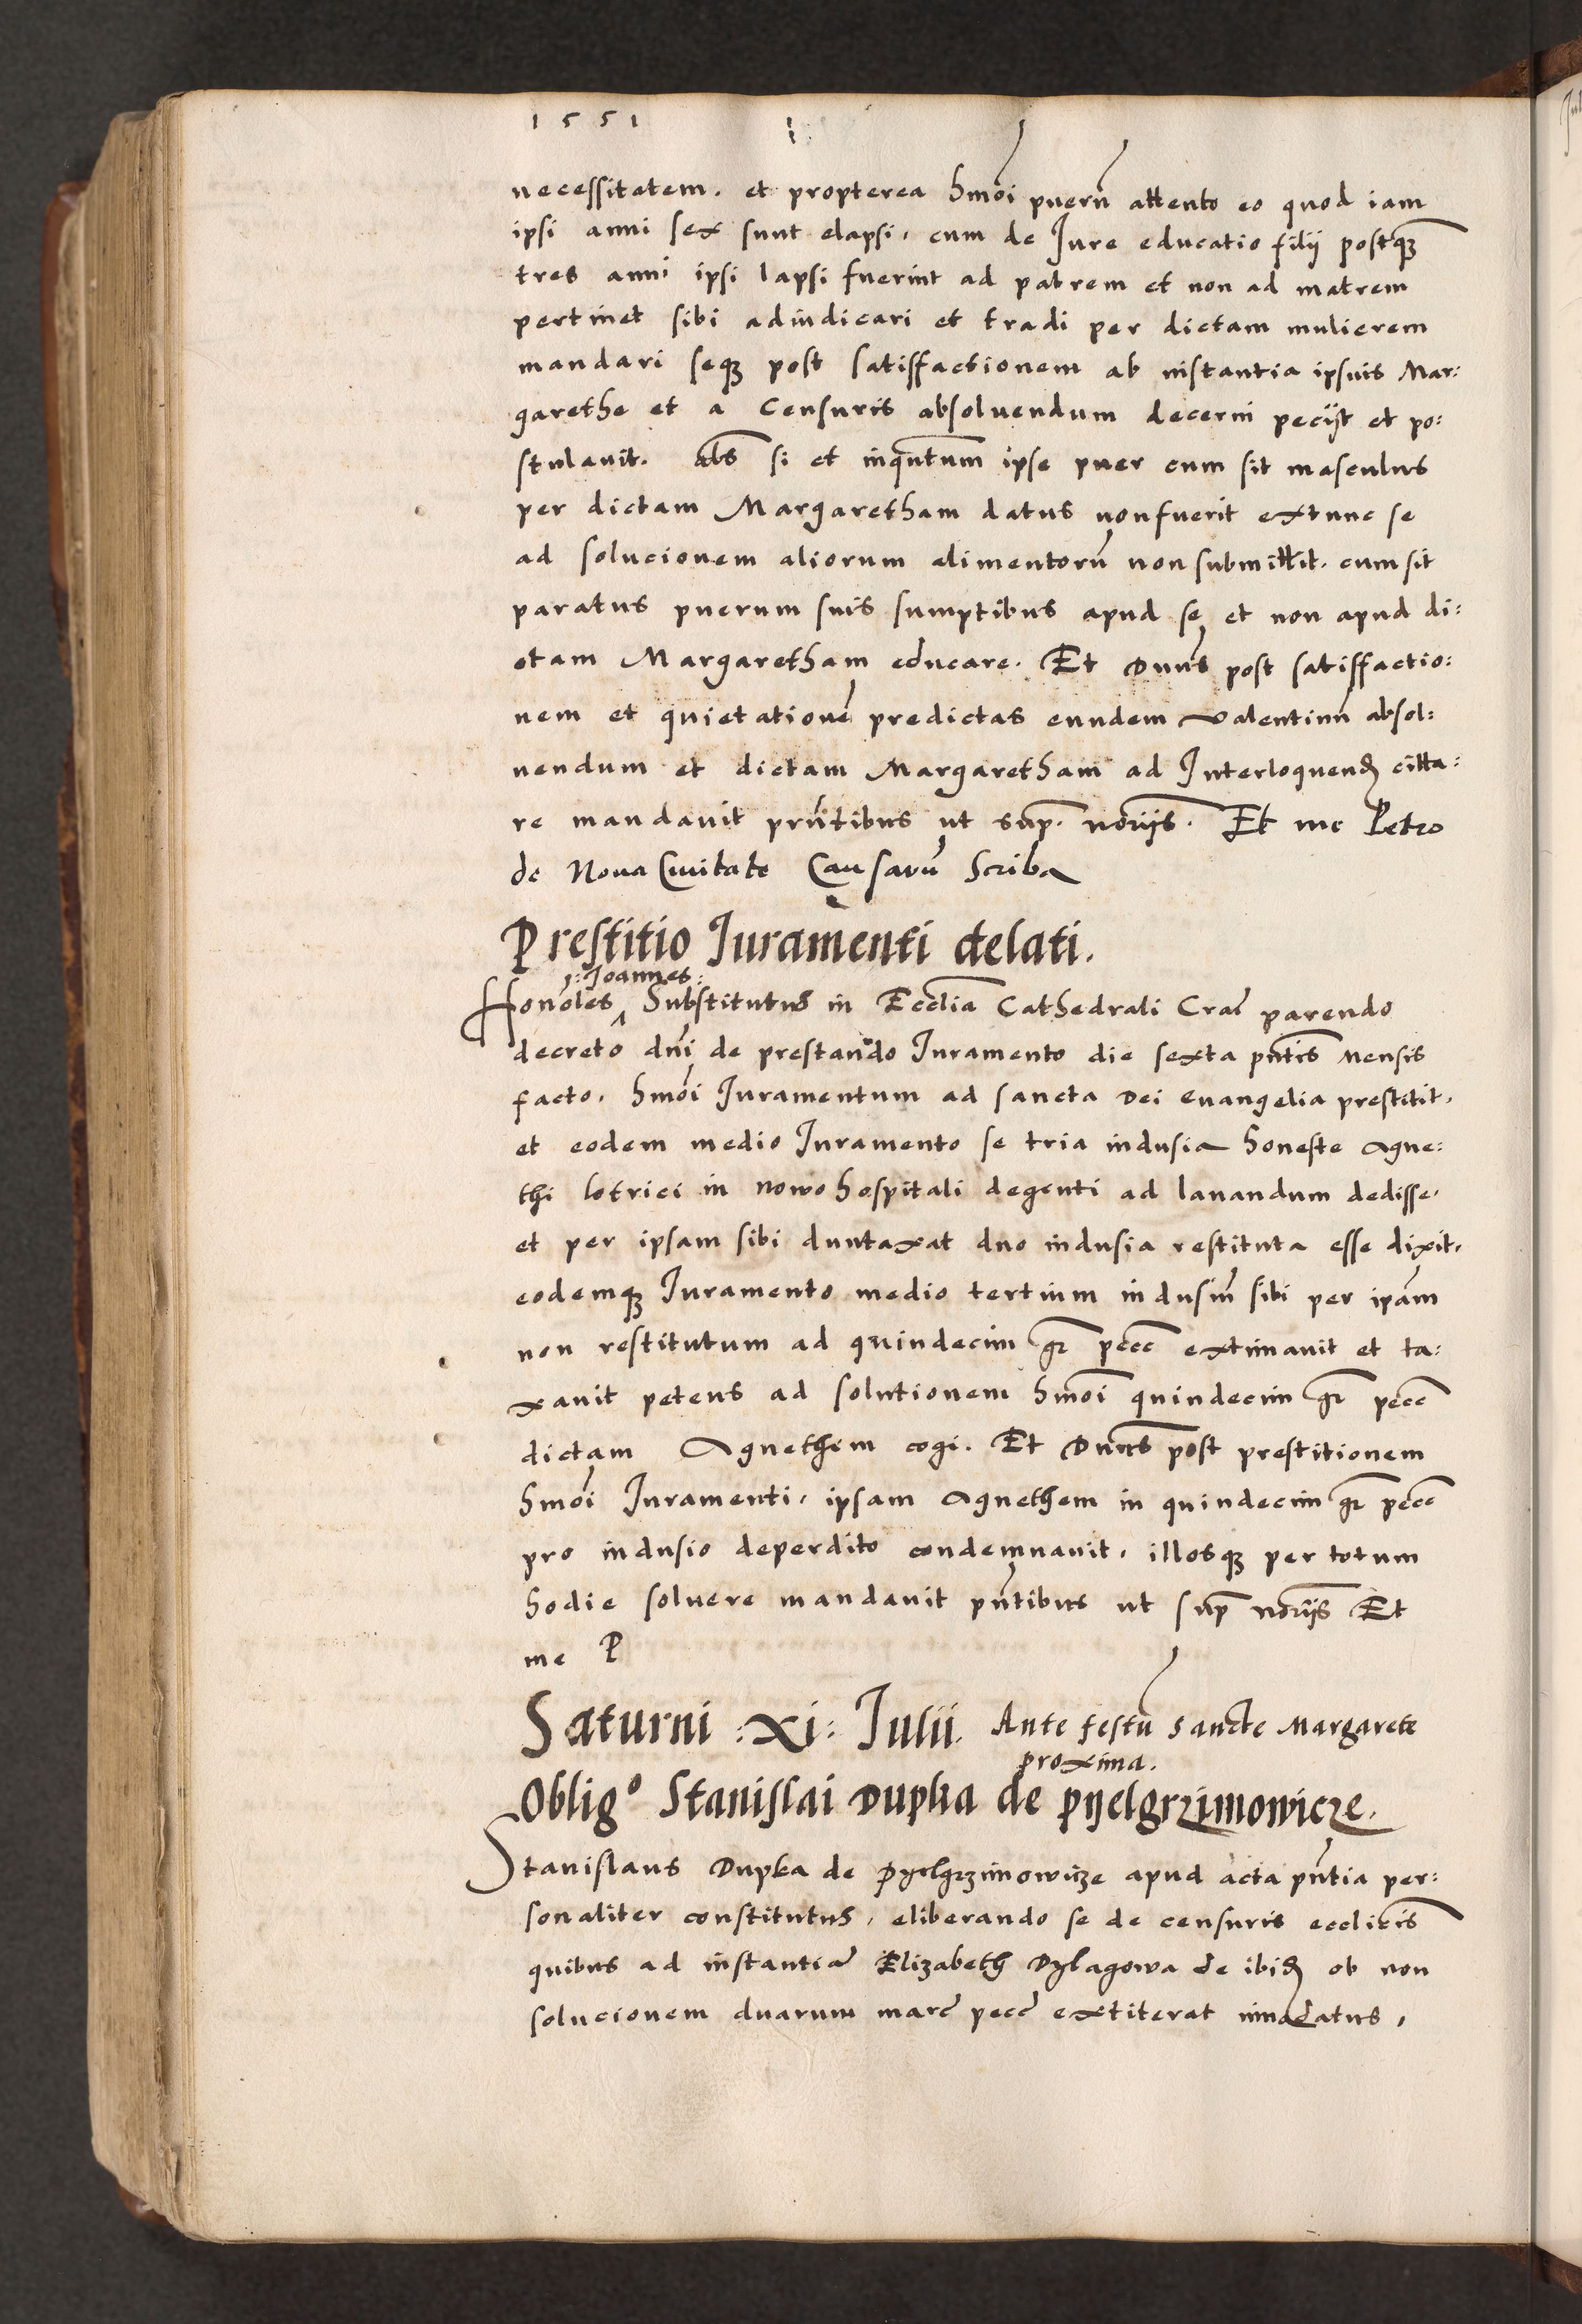 1551
necessitatem. et propterea hmõi puerũ attento eo quod iam
ipsi anni sex sunt elapsi, cum de Jure educatio filij postqꝫ
tres anni ipsi lapsi fuerint ad patrem et non ad matrem
pertinet sibi adiudicari et tradi per dictam mulierem
mandari seqꝫ post satisfactionem ab instantia ipsius Mar:
garethe et a Censuris absoluendum decerni pecijt et po:
stulauit. als̃ si et inqũtum ipse puer cum sit masculus
per dictam Margaretham datus non fuerit extunc se
ad solucionem aliorum alimentorũ non submittit. cum sit
paratus puerum suis sumptibus apud se et non apud di:
ctam Margaretham educare. Et Dnũs post satisfactio:
nem et quietationẽ predictas eundem Valentinũ absol:
uendum et dictam Margaretham ad Interloquenđ citta:
re mandauit prñtibus ut sup̃. noriis̃. Et me Petro
de Noua Ciuitate Causarũ Scriba
Prestitio Juramenti delati.
:Joannes:
Honõles ^ Substitutus in Ecclĩa Cathedrali Crač parendo
decreto dnĩ de prestando Juramento die sexta pñtis mensis
facto, hmõi Juramentum ad sancta Dei Euangelia prestitit,
et eodem medio Juramento se tria indusia honeste Agne:
thi lotrici in nowo hospitali degenti ad lauandum dedisse,
et per ipsam sibi duntaxat duo indusia restituta esse dixit,
eodemqꝫ Juramento medio tertium indusiũ sibi per ipãm
non restitutum ad quindecim gr̃ pecc̃ extimauit et ta:
xauit petens ad solutionem hmõi quindecim gr̃ pecc̃
dictam Agnethem cogi. Et Dnũs post prestitionem
hmõi Juramenti, ipsam Agnethem in quindecim gr̃ pecc̃
pro indusio deperdito condemnauit, illosqꝫ per totum
hodie soluere mandauit pñtibus ut sup̃ noriis̃ Et
me P
Saturni :xi: Julii. Ante festũ Sancte Margarete
proxima.
Obligº Stanislai Dupka de pyelgrzimowicze.
Stanislaus Dupka de Pyelgrzimowicze apud acta pñtia per:
sonaliter constitutus, eliberando se de censuris eccliĩcis
quibus ad instantiã Elizabeth Dylagowa de ibiđ ob non
solucionem duarum marč pecč extiterat innodatus,